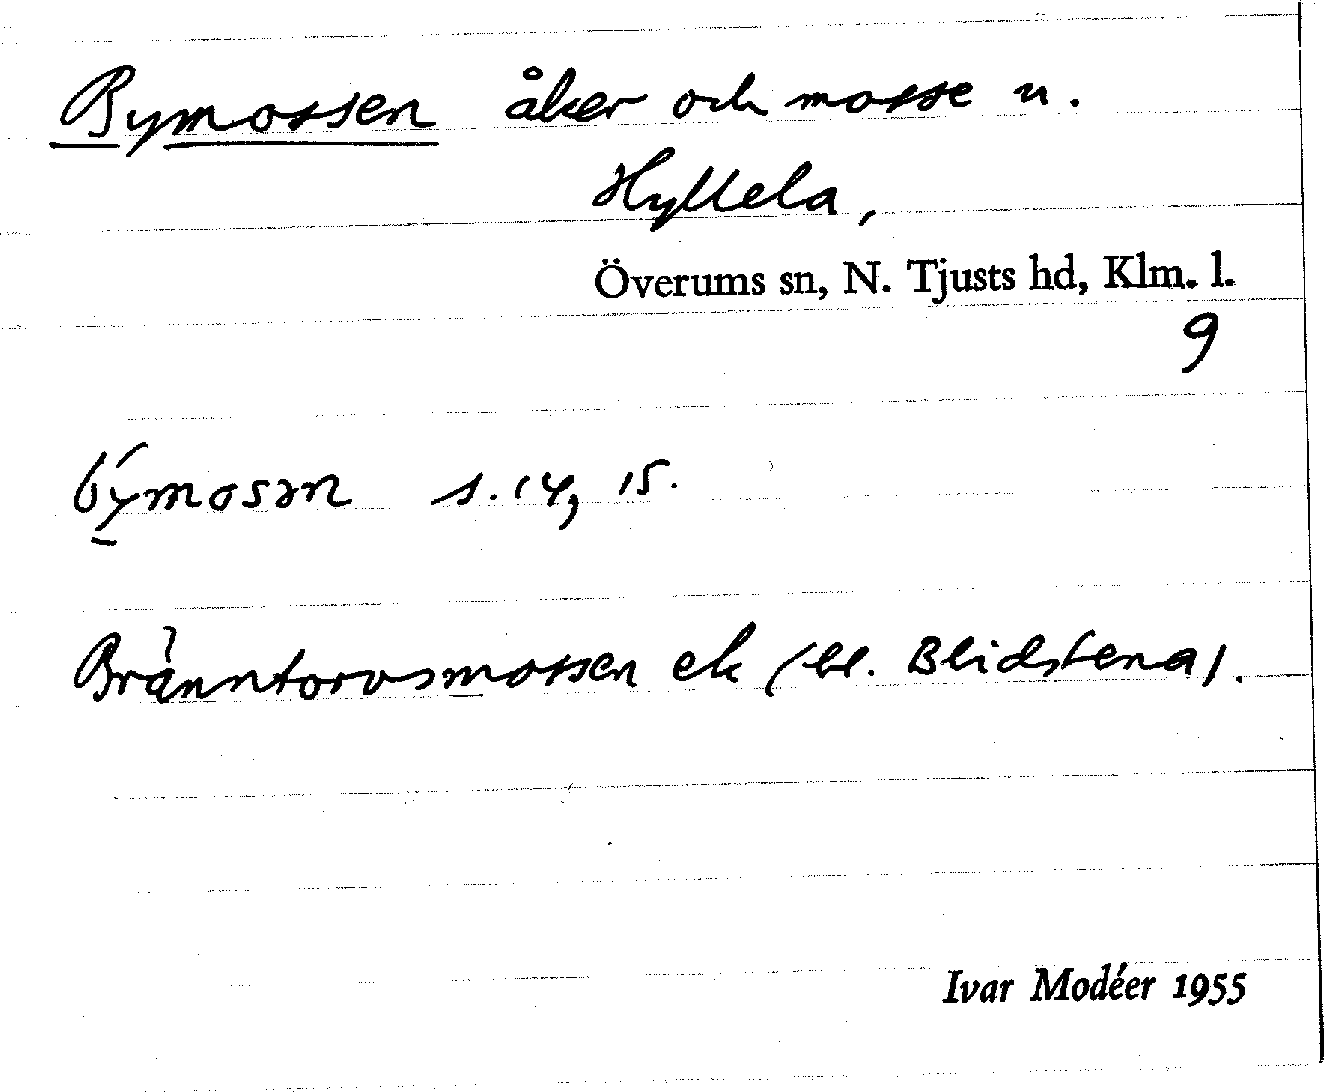 Bymossen åker och mosse u.
Hyllela,
Överums sn, N. Tjusts hd, Klm. l.
9
býmosən s. 14, 15.
Bränntorvsmossen ek (bl. Blidstena).
Ivar Modéer 1955